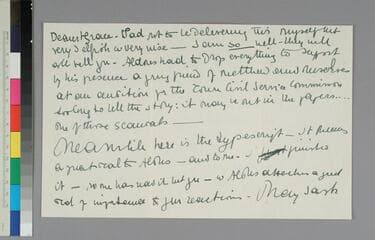 Dearest Grace - Sad not to be delivering this myself but
very selfish is very nice — I am so well - they will
all tell you - Aldous had to drop everything to support
by his presence a young friend of Matthew and ourselves
at an audition for the Civil Service Commission
to tell the story: it may be out in the papers....
one of those scandals —
Meanwhile here is the typescript - It means
a great deal to Aldous - and to me - finished
it - no one has read it but you - & Aldous attaches a good
deal of importance to your reactions -